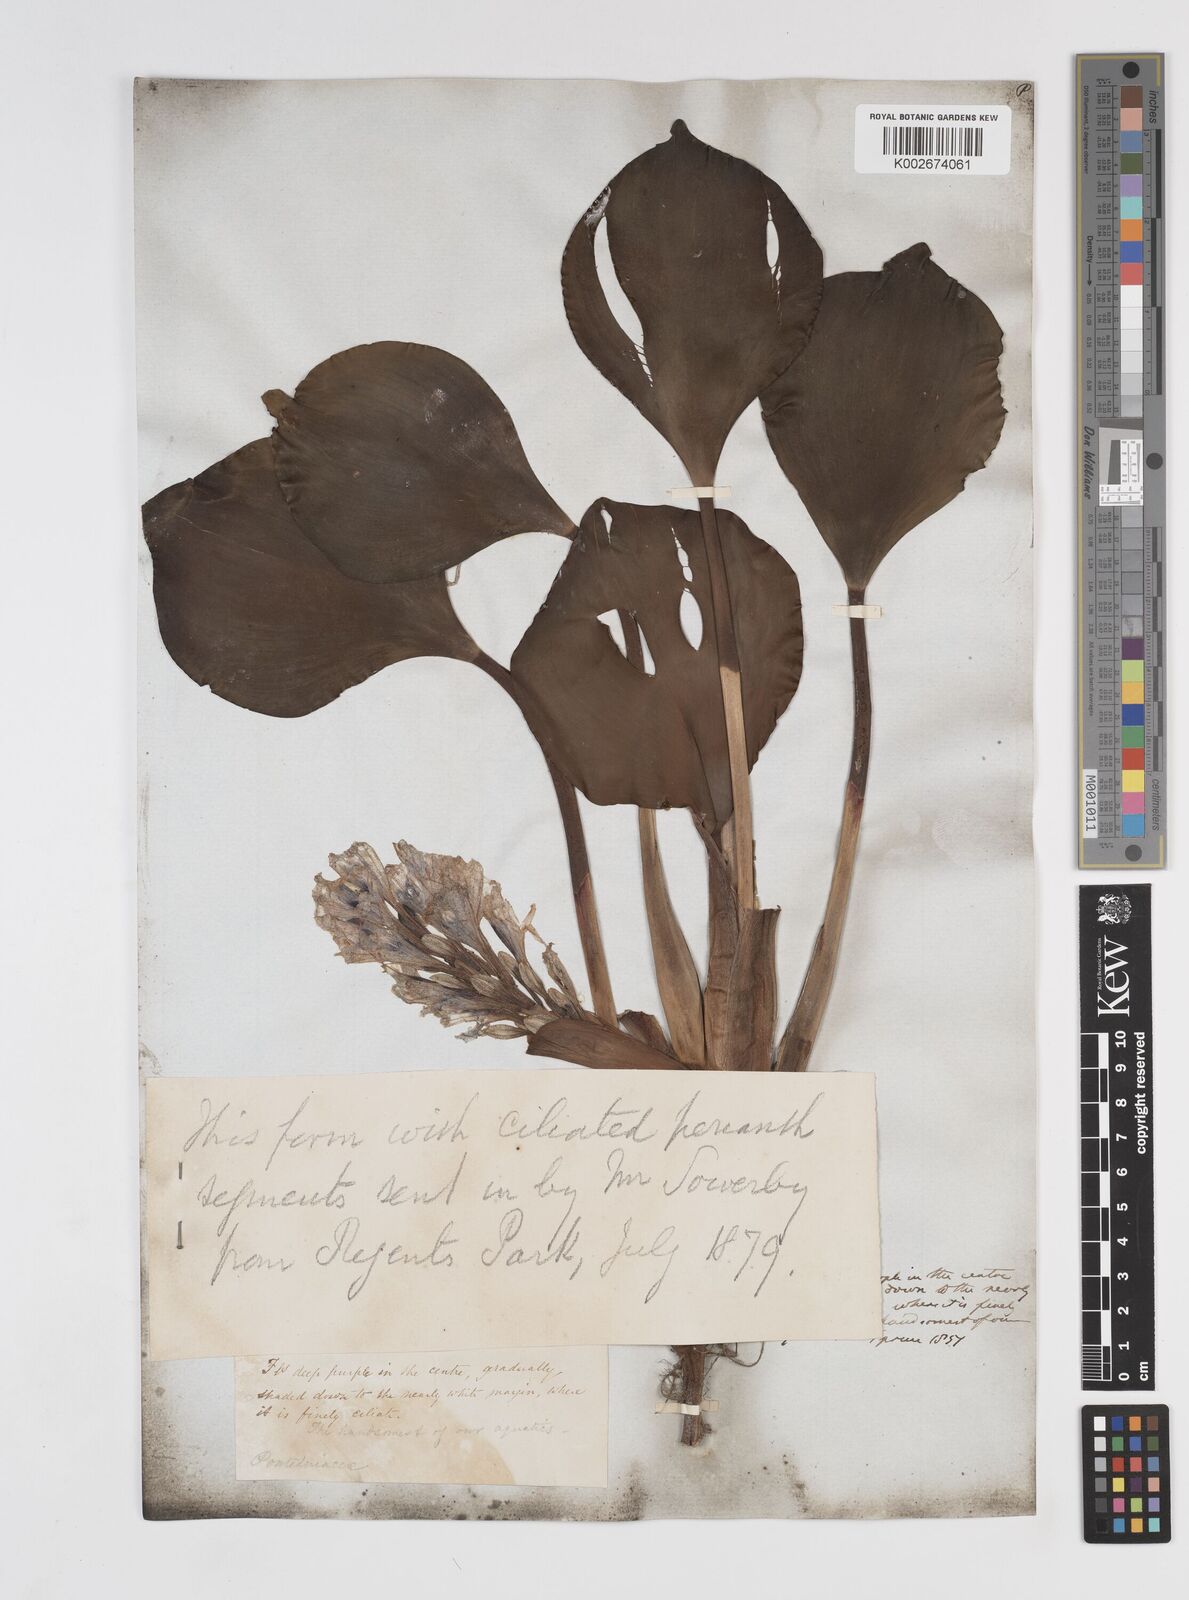 P
ROYAL BOTANIC GARDENS KEW
K002674061
This form with ciliated perianth
segments sent in by Mr Sowerby
from Regents Park, July 1879.
in the centre
down to the nearly
where it is finely
handsomest of our
1857
Fls deep purple in the centre, gradually
shaded down to the nearly white margin, where
it is finely ciliate.
The handsomest of our aquatics.
Pontederiaceae
inches
centimeters
Density
Don Williams
M001011
Kew
Royal Botanic Gardens
0 1 2 3 4 5 6 7 8 9 10
cm
copyright reserved